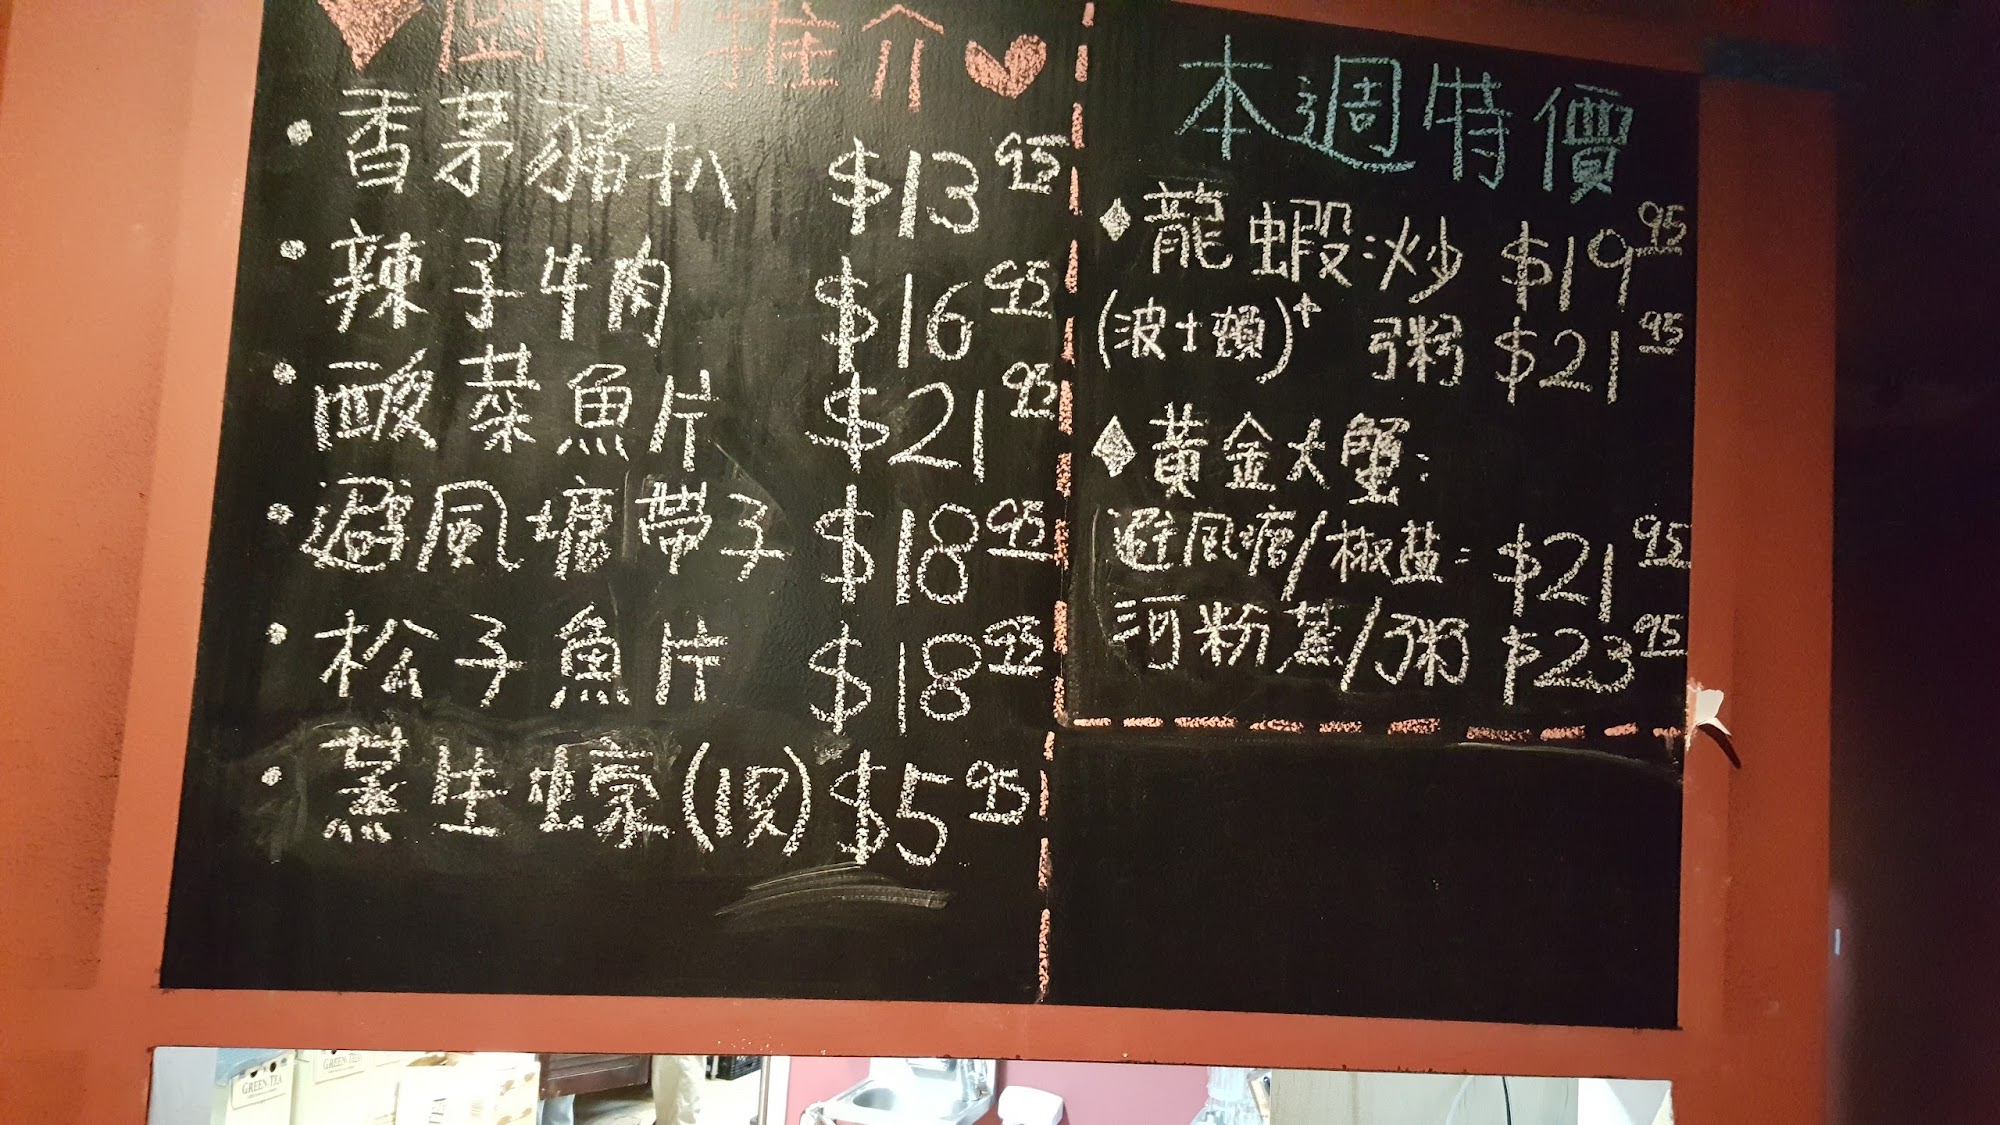 廚師推介
香茅豬扒 $13.95
辣子牛肉 $16.95
酸菜魚片 $21.95
避風塘帶子 $18.95
松子魚片 $18.95
蒸生蠔(1隻) $5.95
本週特價
龍蝦:炒 $19.95
(波士頓) 粥 $21.95
黃金大蟹:
避風塘/椒盐: $21.95
河粉蒸/粥 $23.95
GREEN TEA
GREEN TEA